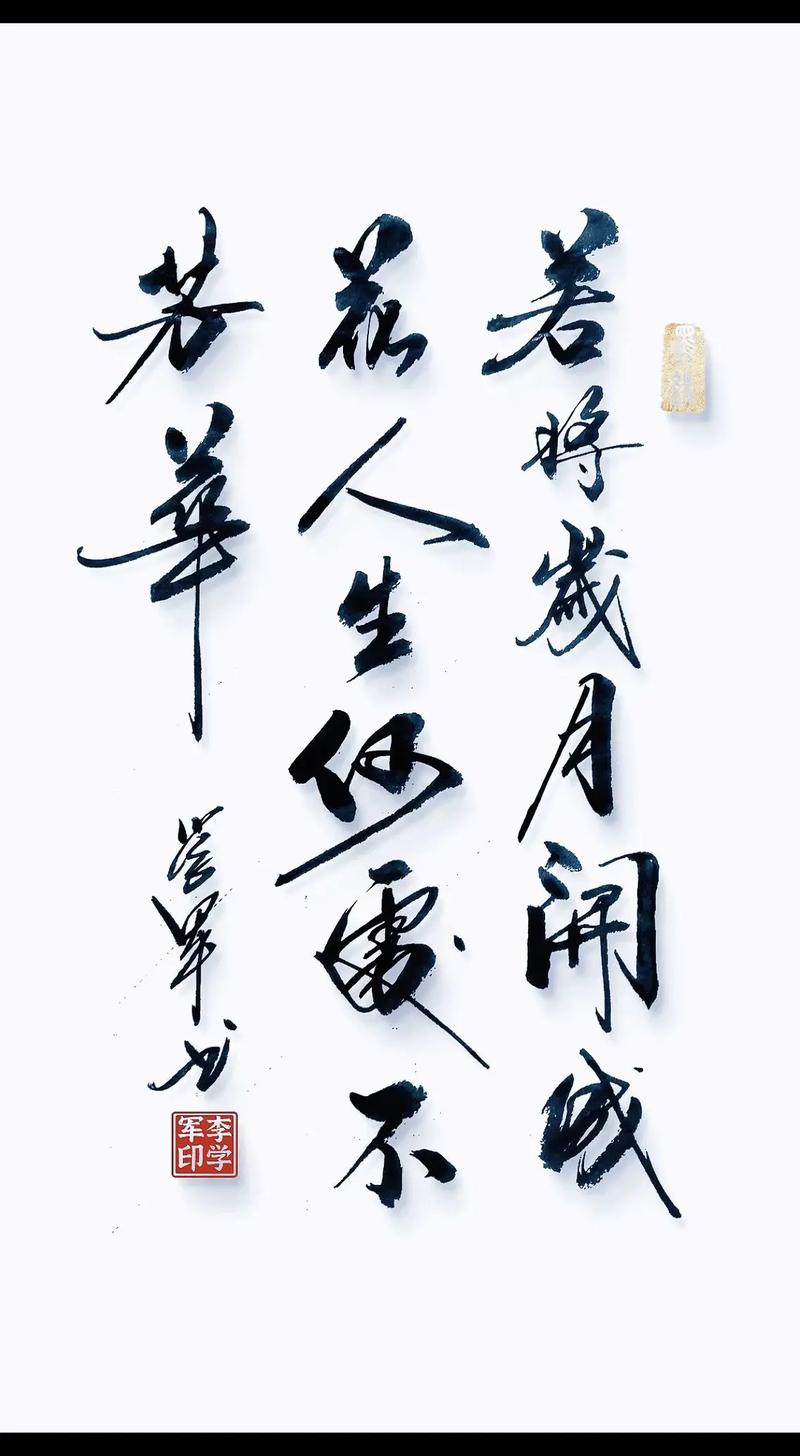 若將歲月開成
花人生何處不
芳華
學軍书
李学
军印